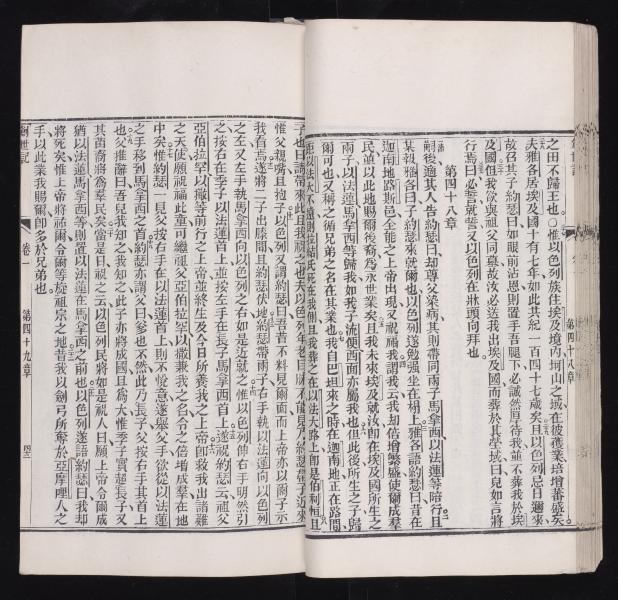 之田不歸王也○惟以色列族住埃及境內坷山之域在彼獲業培增蕃盛矣
夫雅各居埃及國十有七年如此共紀一百四十七歲矣且以色列忌日邇來
故召其子約瑟曰如眼前沾恩則置手吾腿下必誠然厚待我並不葬我於埃
及國但我欲與祖父同墓故汝必送我出埃及國而葬於其塋域曰兒如言將
行焉曰必誓就誓又以色列在牀頭向拜也
第四十八章
嗣後適其人告約瑟曰却尊父染病其則帶同兩子馬拿西以法蓮等陪行且
某報雅各曰子約瑟來就爾也以色列遂勉强坐在榻上雅各語約瑟曰昔在
迦南地路斯邑全能之上帝出現又祝福我謂我云我却倍增繁盛使爾成羣
民並以此地賜爾後裔為永世業矣且我未來埃及就汝卽在埃及國所生之
兩子以法蓮馬拿西等歸我如我子流便西面亦屬我也但此後所生之子歸
爾可也又稱之循兄弟之名在其業也我自巴坦來之時在迦南地正在路間
距以法大不遠則拉結氏死在我側且我葬之在以法大路上卽是伯利恒且
第四十八章
子也曰請帶來此且我祝之也夫以色列年老目眛不能見乃約瑟舉子近來
惟父親嘴且抱子以色列又謂約瑟曰吾昔不料見爾面而上帝亦以爾子示
我看焉遂將二子出膝間且約瑟伏地約瑟帶兩子右手執以法蓮向以色列
之左又左手執馬拿西向以色列之右如是近就之惟以色列伸右手明然引
之按右在季子以法蓮首上並按左手在長子馬拿西首上遂祝約瑟云祖父
亞伯拉罕以撒等前行之上帝並終生及今日所養我之上帝卽救我出諸難
之天使願祝福此童可繼祖父亞伯拉罕以撒兼我之名令之倍增成羣在地
中矣惟約瑟一見父按右手在以法蓮首上則不悅意遂舉父手欲從以法蓮
之手移到馬拿西之首約瑟亦謂父曰爹也不然此乃長子父按右手其首上
也父推辭曰吾兒我知之我知之此子亦將成國且為大惟季子實超長子又
其苗裔將為羣民矣當是日祝之云以色列民將如是祝人曰願上帝令爾成
猶以法蓮馬拿西等則置以法蓮在馬拿西之前也以色列遂語約瑟曰我却
將死矣惟上帝將祐爾令爾等旋祖宗之地昔我以劍弓所奪於亞摩哩人之
手以此業我賜爾卽多於兄弟也
創世記
卷一
第四十九章